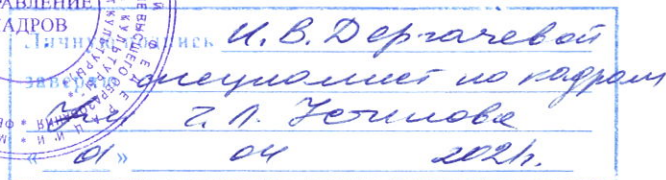 УПРАВЛЕНИЕ
КАДРОВ
Личную подпись И.В. Дергачевой
заверяю специалист по кадрам
Устинова
« 01 » 04 2021г.